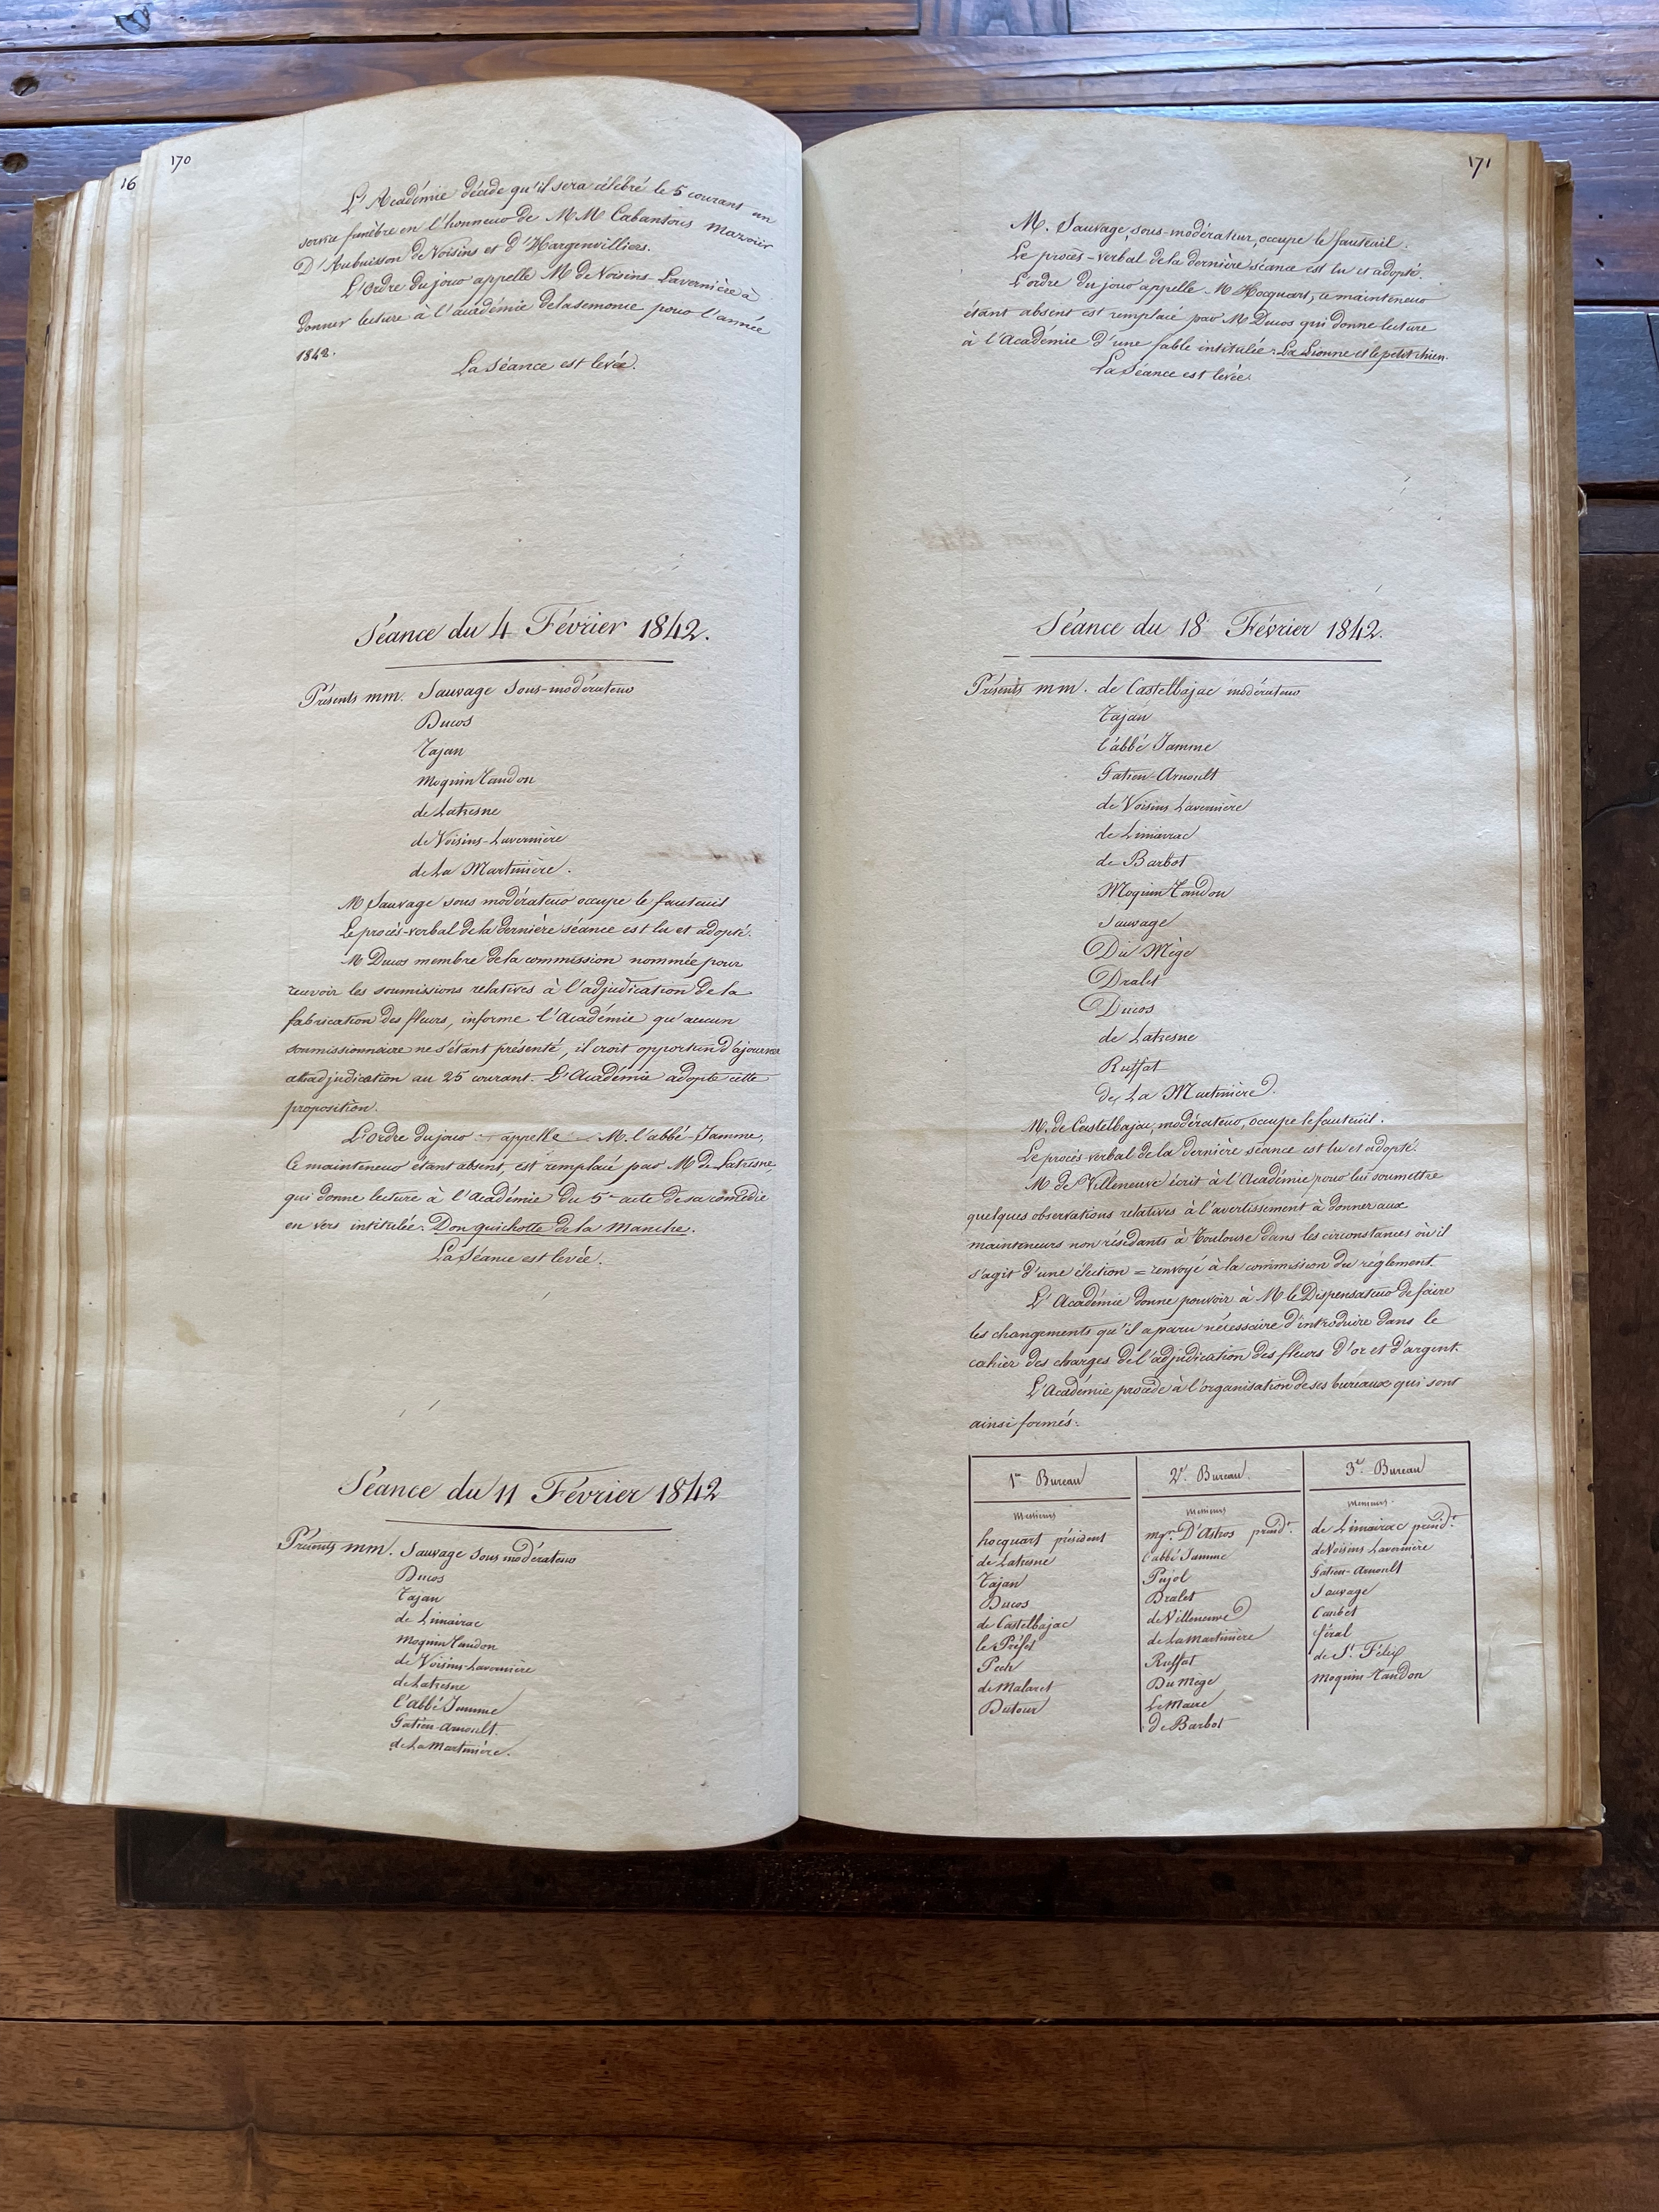 16
170
L'Académie décide qu'il sera célébré le 5 courant un
service funèbre en l'honneur de MM Cabantous Mazoier
D'Aubuisson de Voisins et d'Hargenvilliers.
L'Ordre du jour appelle M de Voisins-Lavernière à
donner lecture à l'académie de la semonce pour l'année
1842.
La Séance est levée.
Séance du 4 Février 1842.
Présents mm. Sauvage Sous-modérateur
Ducos
Tajan
Moquin Tandon
de Latresne
de Voisins-Lavernière
de La Martinière.
M Sauvage sous modérateur occupe le fauteuil
Le procès-verbal de la dernière séance est lu et adopté.
M Ducos membre de la commission nommée pour
recevoir les soumissions relatives à l'adjudication de la
fabrication des fleurs, informe l'Académie qu'aucun
soumissionnaire ne s'étant présenté, il croit opportun d'ajourner
adjudication au 25 courant. L'Académie adopte cette
proposition.
L'ordre du jour appelle M. l'abbé Jamme,
Ce mainteneur étant absent, est remplacé par M de Latresne,
qui donne lecture à l'Académie du 5e acte de sa comédie
en vers intitulée: Don quichotte de la Manche.
La Séance est levée.
Séance du 11 Février 1842
Présents mm. Sauvage Sous modérateur
Ducos
Tajan
de Limairac
Moquin Tandon
de Voisins-Lavernière
de Latresne
l'abbé Jamme
Gatien-Arnoult.
de La Martinière.
171
M. Sauvage, sous-modérateur, occupe le fauteuil.
Le procès-verbal de la dernière séance est lu et adopté.
L'ordre du jour appelle M Hocquart, ce mainteneur
étant absent est remplacé par M Ducos qui donne lecture
à l'Académie d'une fable intitulée: La Lionne et le petit chien.
La Séance est levée.
Séance du 18 Février 1842.
Présents mm. de Castelbajac modérateur
Tajan
l'abbé Jamme
Gatien-Arnoult
de Voisins Lavernière
de Limairac
de Barbot
Moquin Tandon
Sauvage
Du Mège
Dralet
Ducos
de Latresne
Ruffat
de La Martinière.
M. de Castelbajac, modérateur, occupe le fauteuil.
Le procès verbal de la dernière séance est lu et adopté.
M. de Villeneuve écrit à l'Académie pour lui soumettre
quelques observations relatives à l'avertissement à donner aux
mainteneurs non résidants à Toulouse dans les circonstances où il
s'agit d'une élection = renvoyé à la commission du réglement.
L'Académie donne pouvoir à M le Dispensateur de faire
les changements qu'il a paru nécessaire d'introduire dans le
cahier des charges de l'adjudication des fleurs d'or et d'argent.
L'Académie procède à l'organisation de ses bureaux qui sont
ainsi formés:
1er Bureau
Messieurs
hocquart président
de Latresne
Tajan
Ducos
de Castelbajac
le Préfet
Pech
de Malaret
Dutour
2e. Bureau.
Messieurs
mgr. D'Astros présidt.
l'abbé Jamme
Pujol
Dralet
de Villeneuve
de La Martinière
Ruffat
Du Mège
Le Maire
de Barbot
3e. Bureau
Messieurs
de Limairac présidt.
de Voisins Lavernière
Gatien-Arnoult
Sauvage
Caubet
féral
de St. Félix
Moquin Tandon